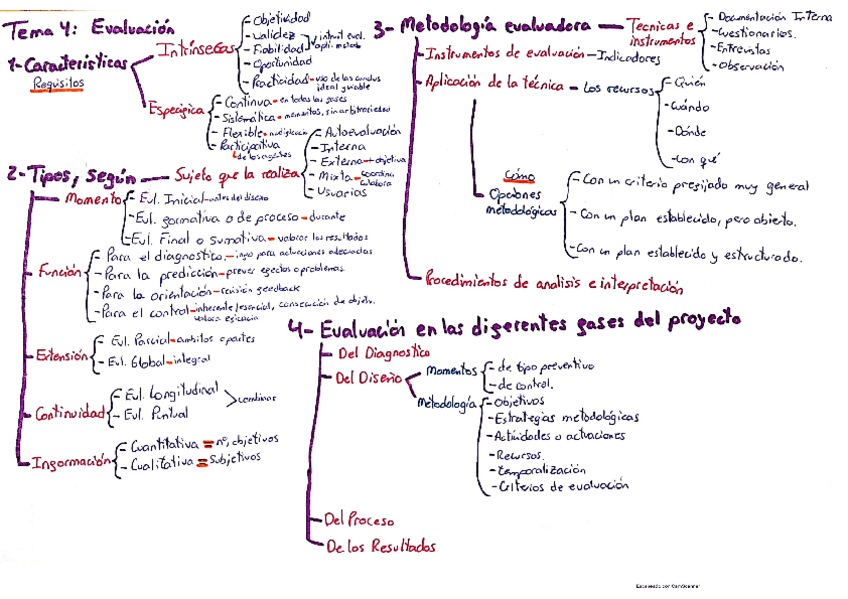 Tema 4: Evaluación
1- Características
Requisitos
Intrínsecas
- Objetividad
- Validez
- Fiabilidad
- Oportunidad
- Practicidad
Específica
- Continua - en todas las fases
- Sistemática - momentos, sin arbitrariedad
- Flexible
- Participativa
de los agentes
2- Tipos, Según
Sujeto que la realiza
- Autoevaluación
- Interna
- Externa + objetiva
- Mixta - coordina
colabora
- Usuarios
Momento
- Evl. Inicial - antes del diseño
- Evl. formativa o de proceso - durante
- Evl. Final o Sumativa - valorar los resultados
Función
- Para el diagnostico. - info para actuaciones adecuadas
- Para la predicción - prever efectos o problemas
- Para la orientación - revisión feedback
- Para el control - inherente/esencial, consecución de objtv.
valora eficacia
Extensión
- Evl. Parcial - ambitos o partes
- Evl. Global - integral
Continuidad
- Evl. Longitudinal
- Evl. Puntual
combinar
Información
- Cuantitativa = nº, objetivos
- Cualitativa = Subjetivos
3- Metodología evaluadora
Tecnicas e
instrumentos
- Documentación Interna
- Cuestionarios.
- Entrevistas
- Observación
- Instrumentos de evaluación - Indicadores
- Aplicación de la técnica - Los recursos
- Quién
- Cuándo
- Dónde
- Con qué
Cómo
Opciones
metodológicas
- Con un criterio prefijado muy general
- Con un plan establecido, pero abierto.
- Con un plan establecido y estructurado.
Procedimientos de analisis e interpretación
4- Evaluación en las diferentes fases del proyecto
- Del Diagnostico
- Del Diseño
Momentos
- de tipo preventivo
- de control.
Metodología
- Objetivos
- Estrategias metodológicas
- Actividades o actuaciones
- Recursos.
- temporalización
- Criterios de evaluación
- Del Proceso
- De los Resultados
Escaneado con CamScanner